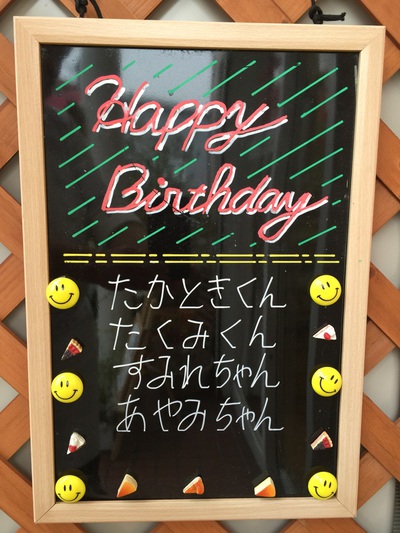 Happy
Birthday
たかときくん
たくみくん
すみれちゃん
あやみちゃん